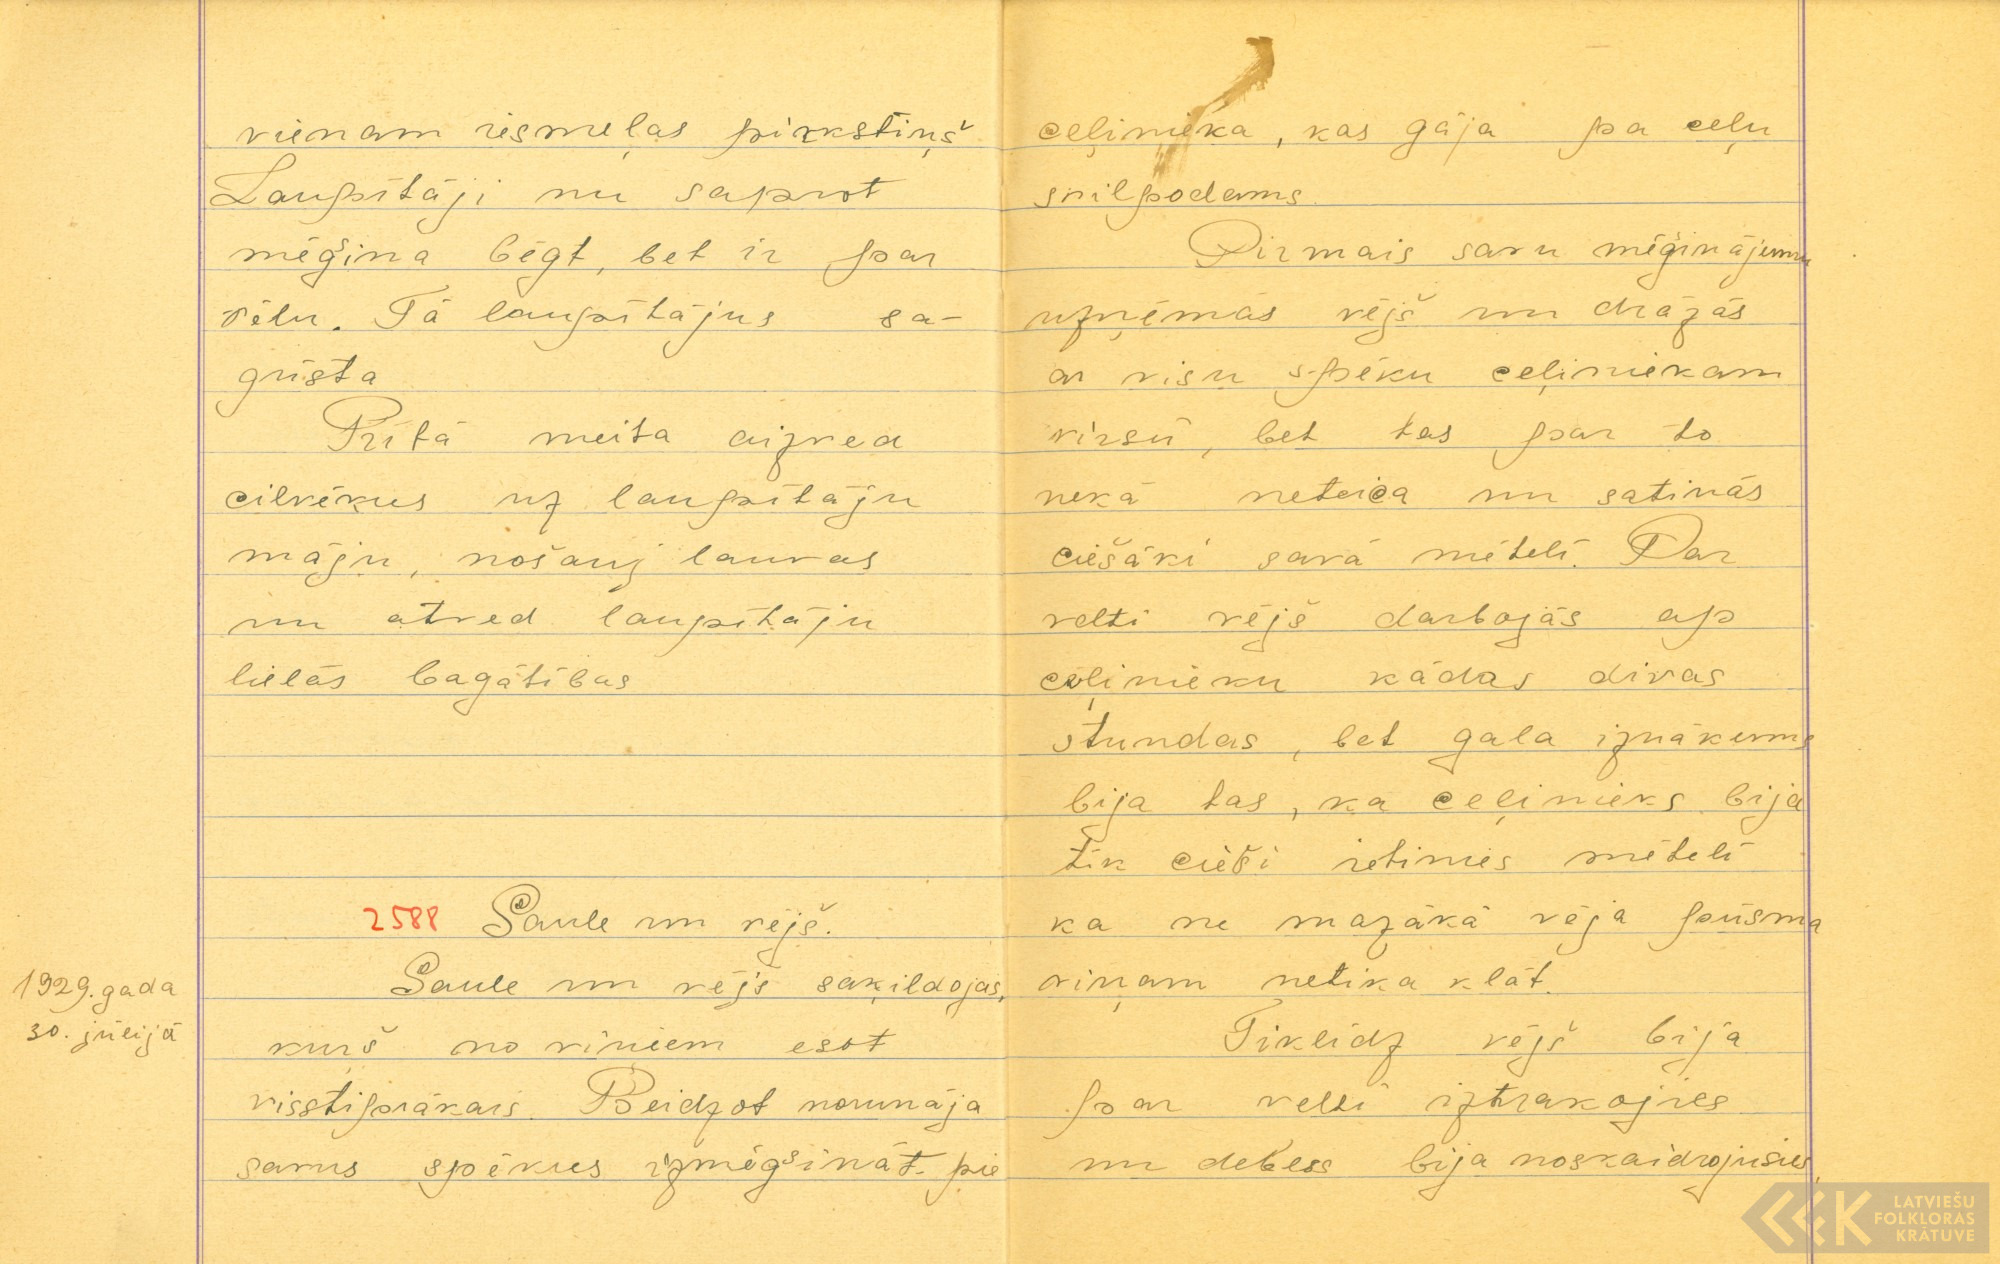 vienam iesmeļas pirkstiņš
Laupītāji nu saprot
mēģina bēgt, bet ir par
vēlu. Tā laupītājus sa-
gūsta
Rītā meita aizved
cilvēkus uz laupītāju
māju, nošauj lauvas
un atved laupītāju
lielās bagātības
2588 Saule un vējš.
1929. gada
30. jūlijā
Saule un vējš saķildojās,
kurš no viņiem esot
visstiprākais. Beidzot norunāja
savus spēkus izmēģināt pie
ceļinieka, kas gāja pa ceļu
svilpodams
Pirmais savu mēģinājumu
uzņēmās vējš un drāzās
ar visu spēku ceļiniekam
virsū, bet tas par to
nekā neteica un satinās
ciešāki savā mētelī. Par
velti vējš darbojās ap
ceļinieku kādas divas
stundas, bet gala iznākums
bija tas, ka ceļinieks bija
tik cieši ietinies mētelī
ka ne mazākā vēja pūsma
viņam netika klāt.
Tiklīdz vējš bija
par velti iztrakojies
un debess bija noskaidrojusies,
LATVIEŠU
FOLKLORAS
KRĀTUVE